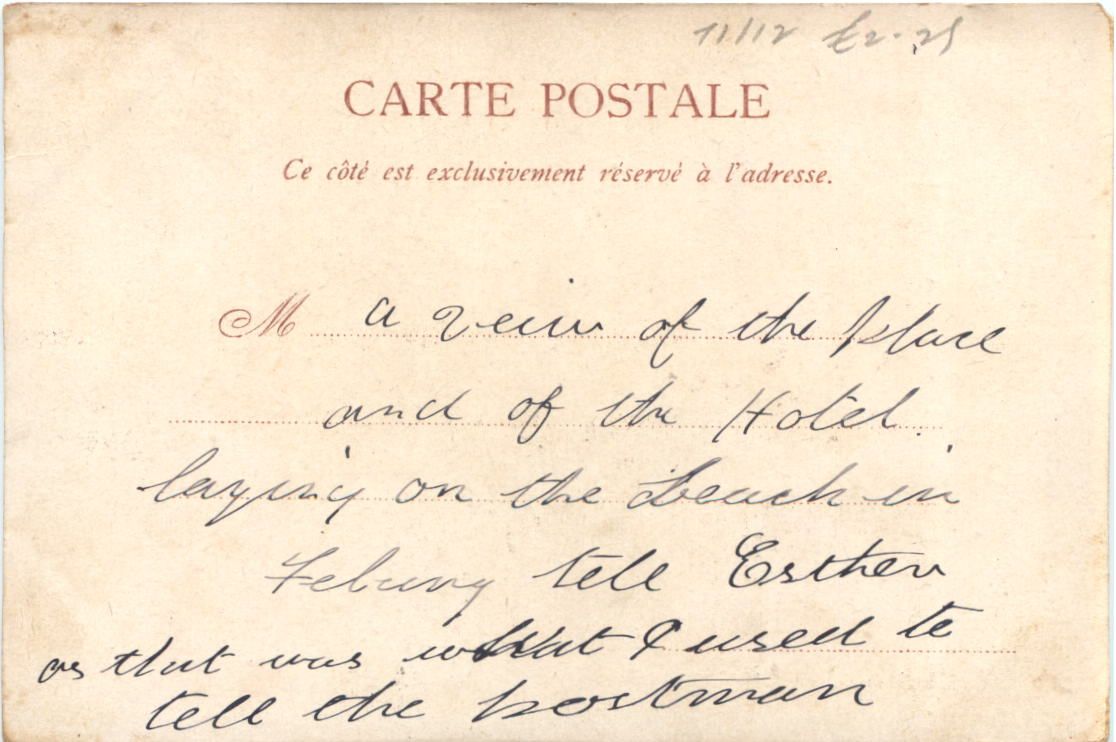 11/12 £2.25
CARTE POSTALE
Ce côté est exclusivement réservé à l'adresse.
M a veiw of the place
and of the Hotel.
laying on the Beach in
Febuary tell Esther
as that was what I used to
tell the postman